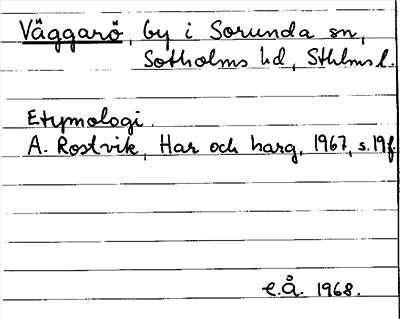 Väggarö, by i Sorunda sn,
Sotholms hd, Sthlms l.
Etymologi.
A. Rostvik, Har och harg, 1967, s. 19f.
E.Å. 1968.